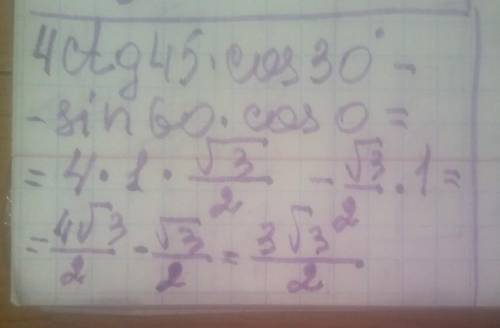 4ctg45·cos30°-
-sin60·cos0=
=4·1·√3/2 -√3/2·1=
=4√3/2-√3/2=3√3/2.